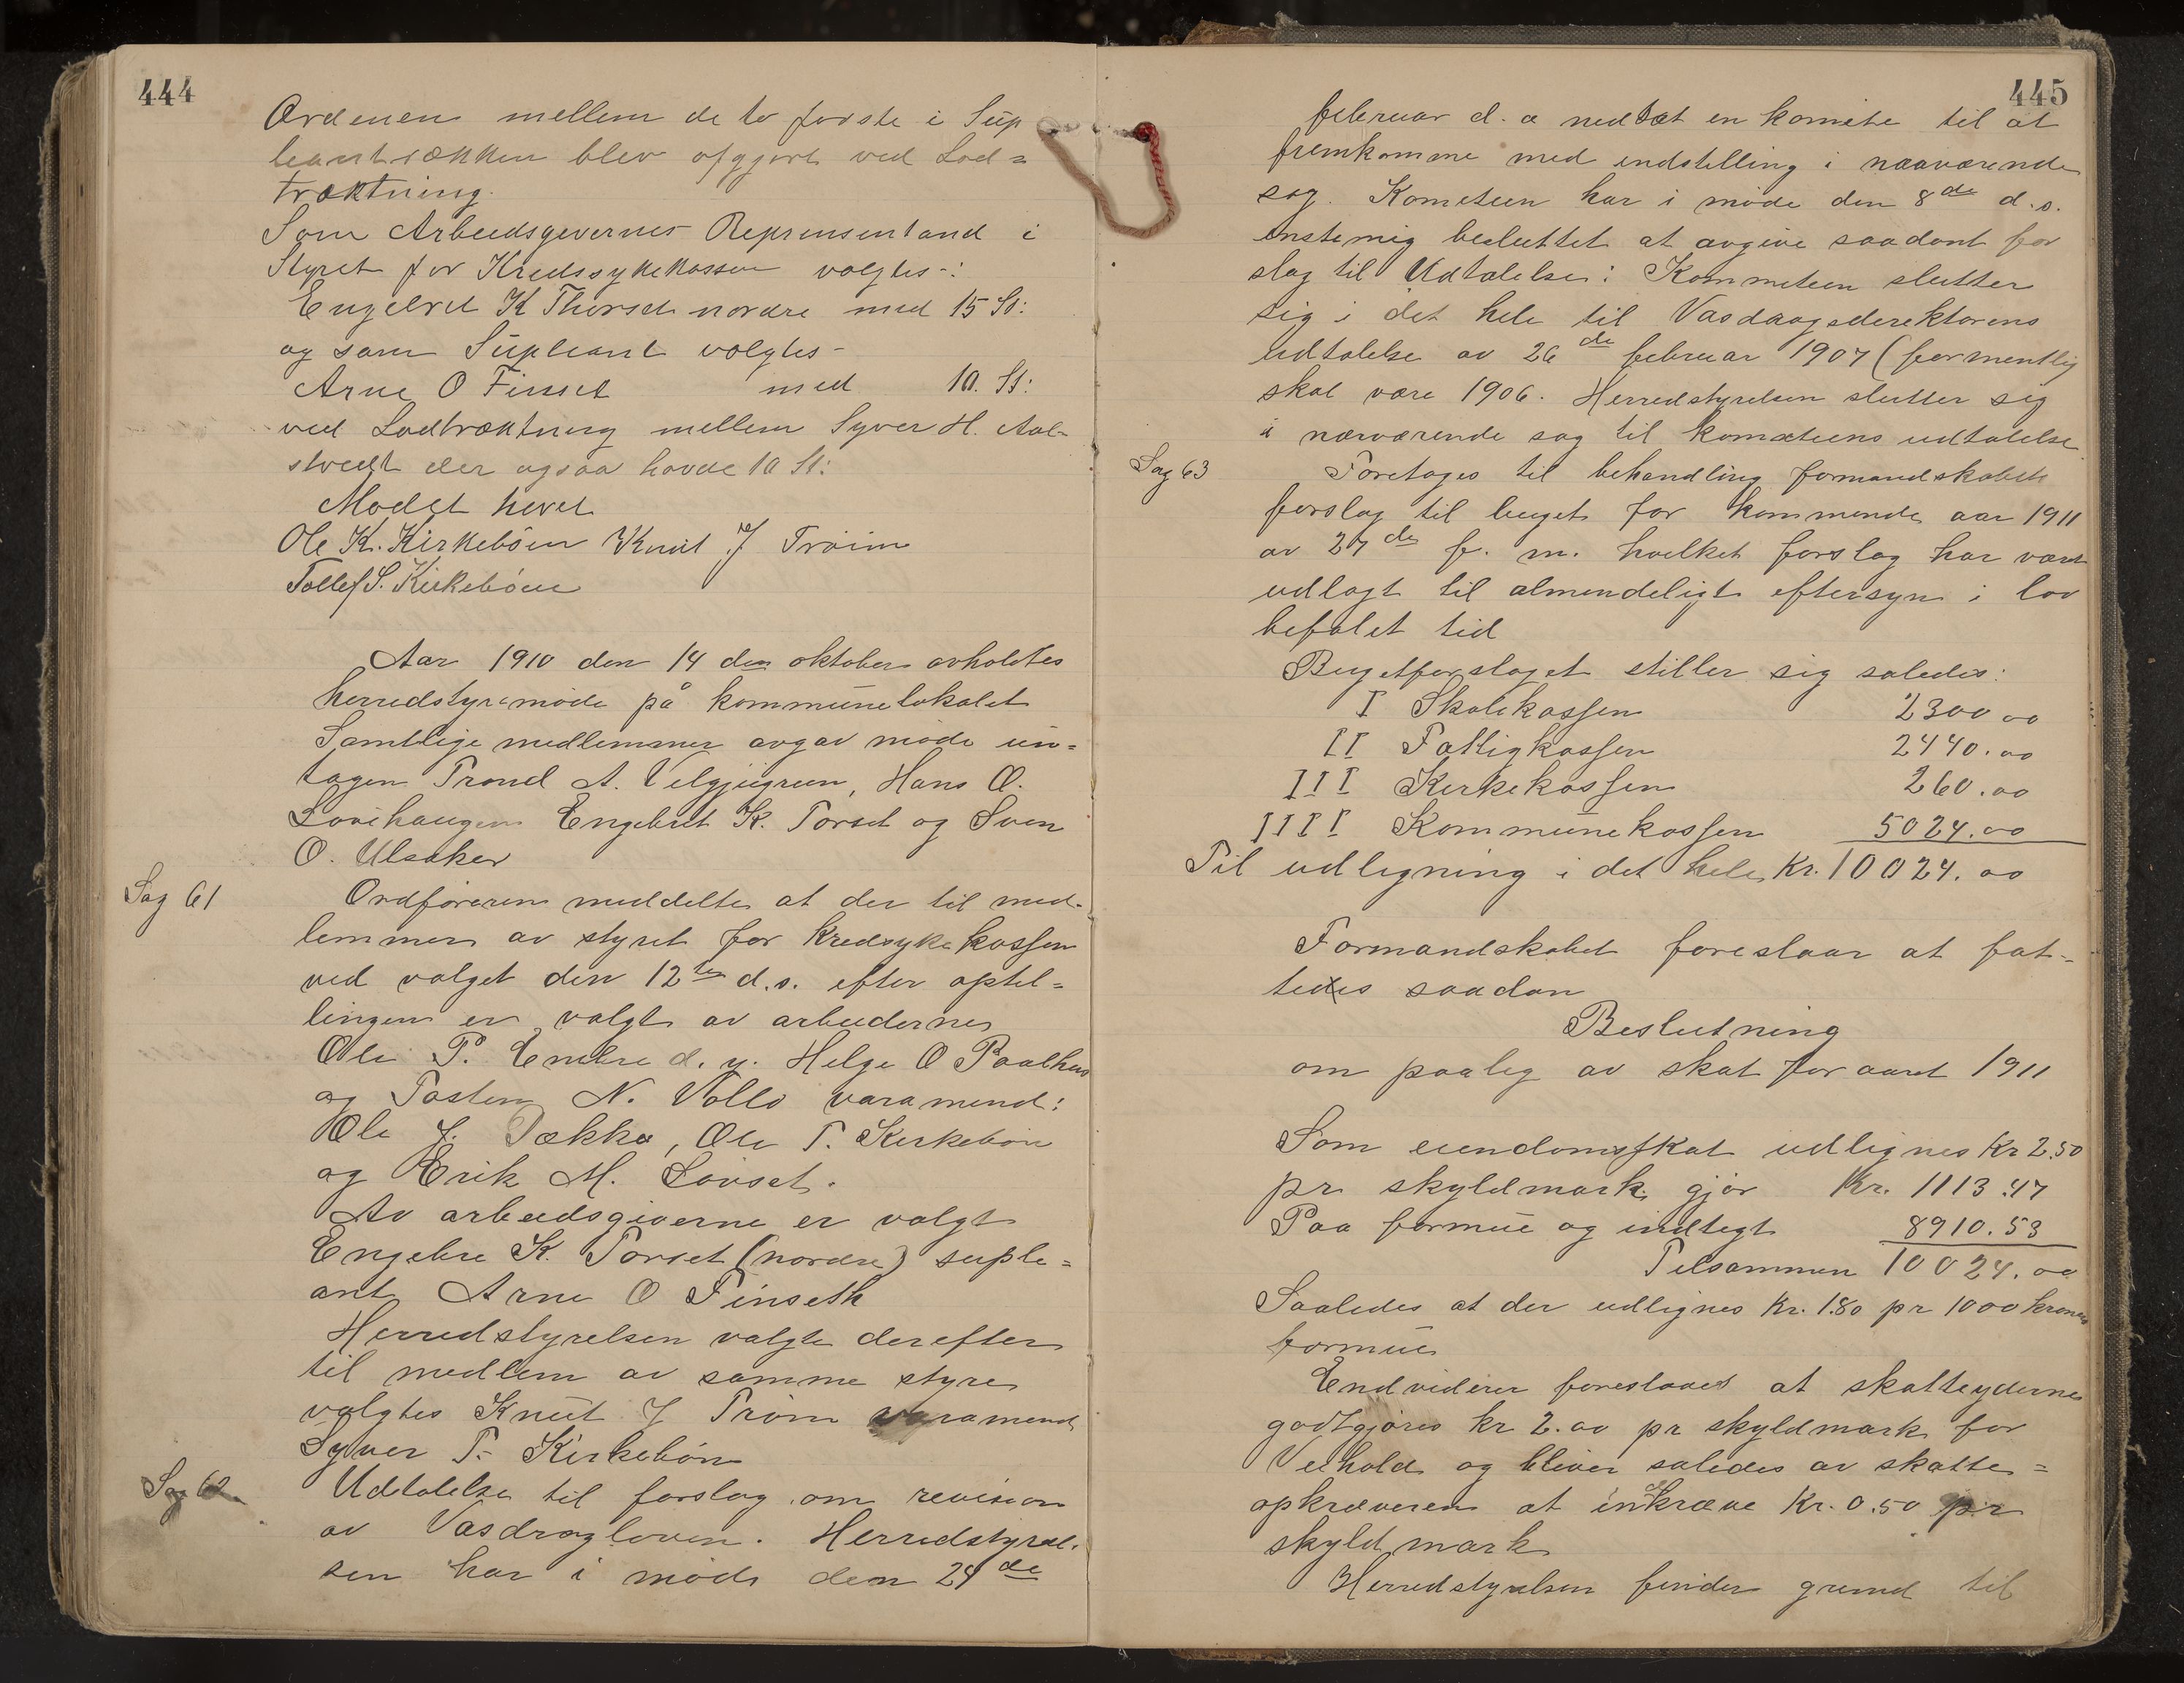 444
Ordenen mellem de to første i Sup
leantrækken blev afgjort ved Lod=
træktning.
Som Arbeidsgevernes Reprensentand i
Styret for Kredssykekassen valgtes:
Engebret K Thorset nordre med 15 St:
og som Supleant valgtes
Arne O Finset med 10. St:
ved Lodtræktning mellem Syver H. Aal-
stvedt der ogsaa havde 10 St:
Mødet hevet
Ole K. Kirkebøen Knut J Trøim
Tollef S. Kirkebøen
Aar 1910 den 14 den oktober avholdtes
herredstyremøde på kommunelokalet
Samtlige medlemmer avgav møde un=
tagen Trond A. Velgjugren, Hans O.
Lovehaugen Engebret K. Torset og Sven
O. Ulsaker
Sag 61
Ordføreren meddelte at der til med-
lemmer av styret for Kredsykekassen
ved valget den 12te d.s. efter optel=
lingen er valgt av arbeidernes
Ole P. Embre d. y. Helge O Paalhus
og Tosten N. Vollo varamend:
Ole J. Dækko, Ole T. Kirkebøn
og Erik M. Løvset.
Av arbeidsgiverne er valgt
Engebre K. Torset (nordre) suple=
ant Arne O Finseth
Herredstyrelsen valgte derefter
til medlem av samme styre
valgtes Knut J Trøim varamend
Syver T. Kirkebøn
Sag 62
Udtalelse til forslag om revision
av Vasdragloven. Herredstyrel-
sen har i møde den 24de
445
februar d. a nedsat en komite til at
fremkomme med indstilling i naaværende
sag. Kometeen har i møde den 8de d.s.
enstemig besluttet at avgive saadant for
slag til Udtalelse: Kommeteen slutter
sig i det hele til Vasdragsderektørens
udtalelse av 26de februar 1907 (formentlig
skal være 1906. Herredstyrelsen slutter sig
i nærværende sag til kometeens udtalelse
Sag 63
Foretages til behandling formandskabets
forslag til buget for kommende aar 1911
av 27de f. m. hvilket forslag har været
udlagt til almendeligt eftersyn i lov
befalet tid
Bugetforslaget stiller sig saledes:
I Skolekassen 2300 00
II Fattigkassen 2440.00
III Kerkekassen 260.00
IIII Kommunekassen 5024.00
Til udligning i det hele Kr. 10024.00
Formandskabet foreslaar at fat-
tedes saadan
Beslutning
om paaleg av skat for aaret 1911
Som eiendomsskat udlignes Kr 2.50
pr skyldmark gjør Kr. 1113.47
Paa formue og indtegt 8910.53
Tilsammen 10024.00
Saaledes at der udlignes Kr. 1.80 pr 1000 kroner
formue
Endviderer foreslaaes at skatteyderne
godtgjøres kr 2.00 pr skyldmark for
Veihold og bliver saledes av skatte=
opkræveren at inkræve Kr. 0.50 pr
skyldmark
Herredstyrelsen finder grund til